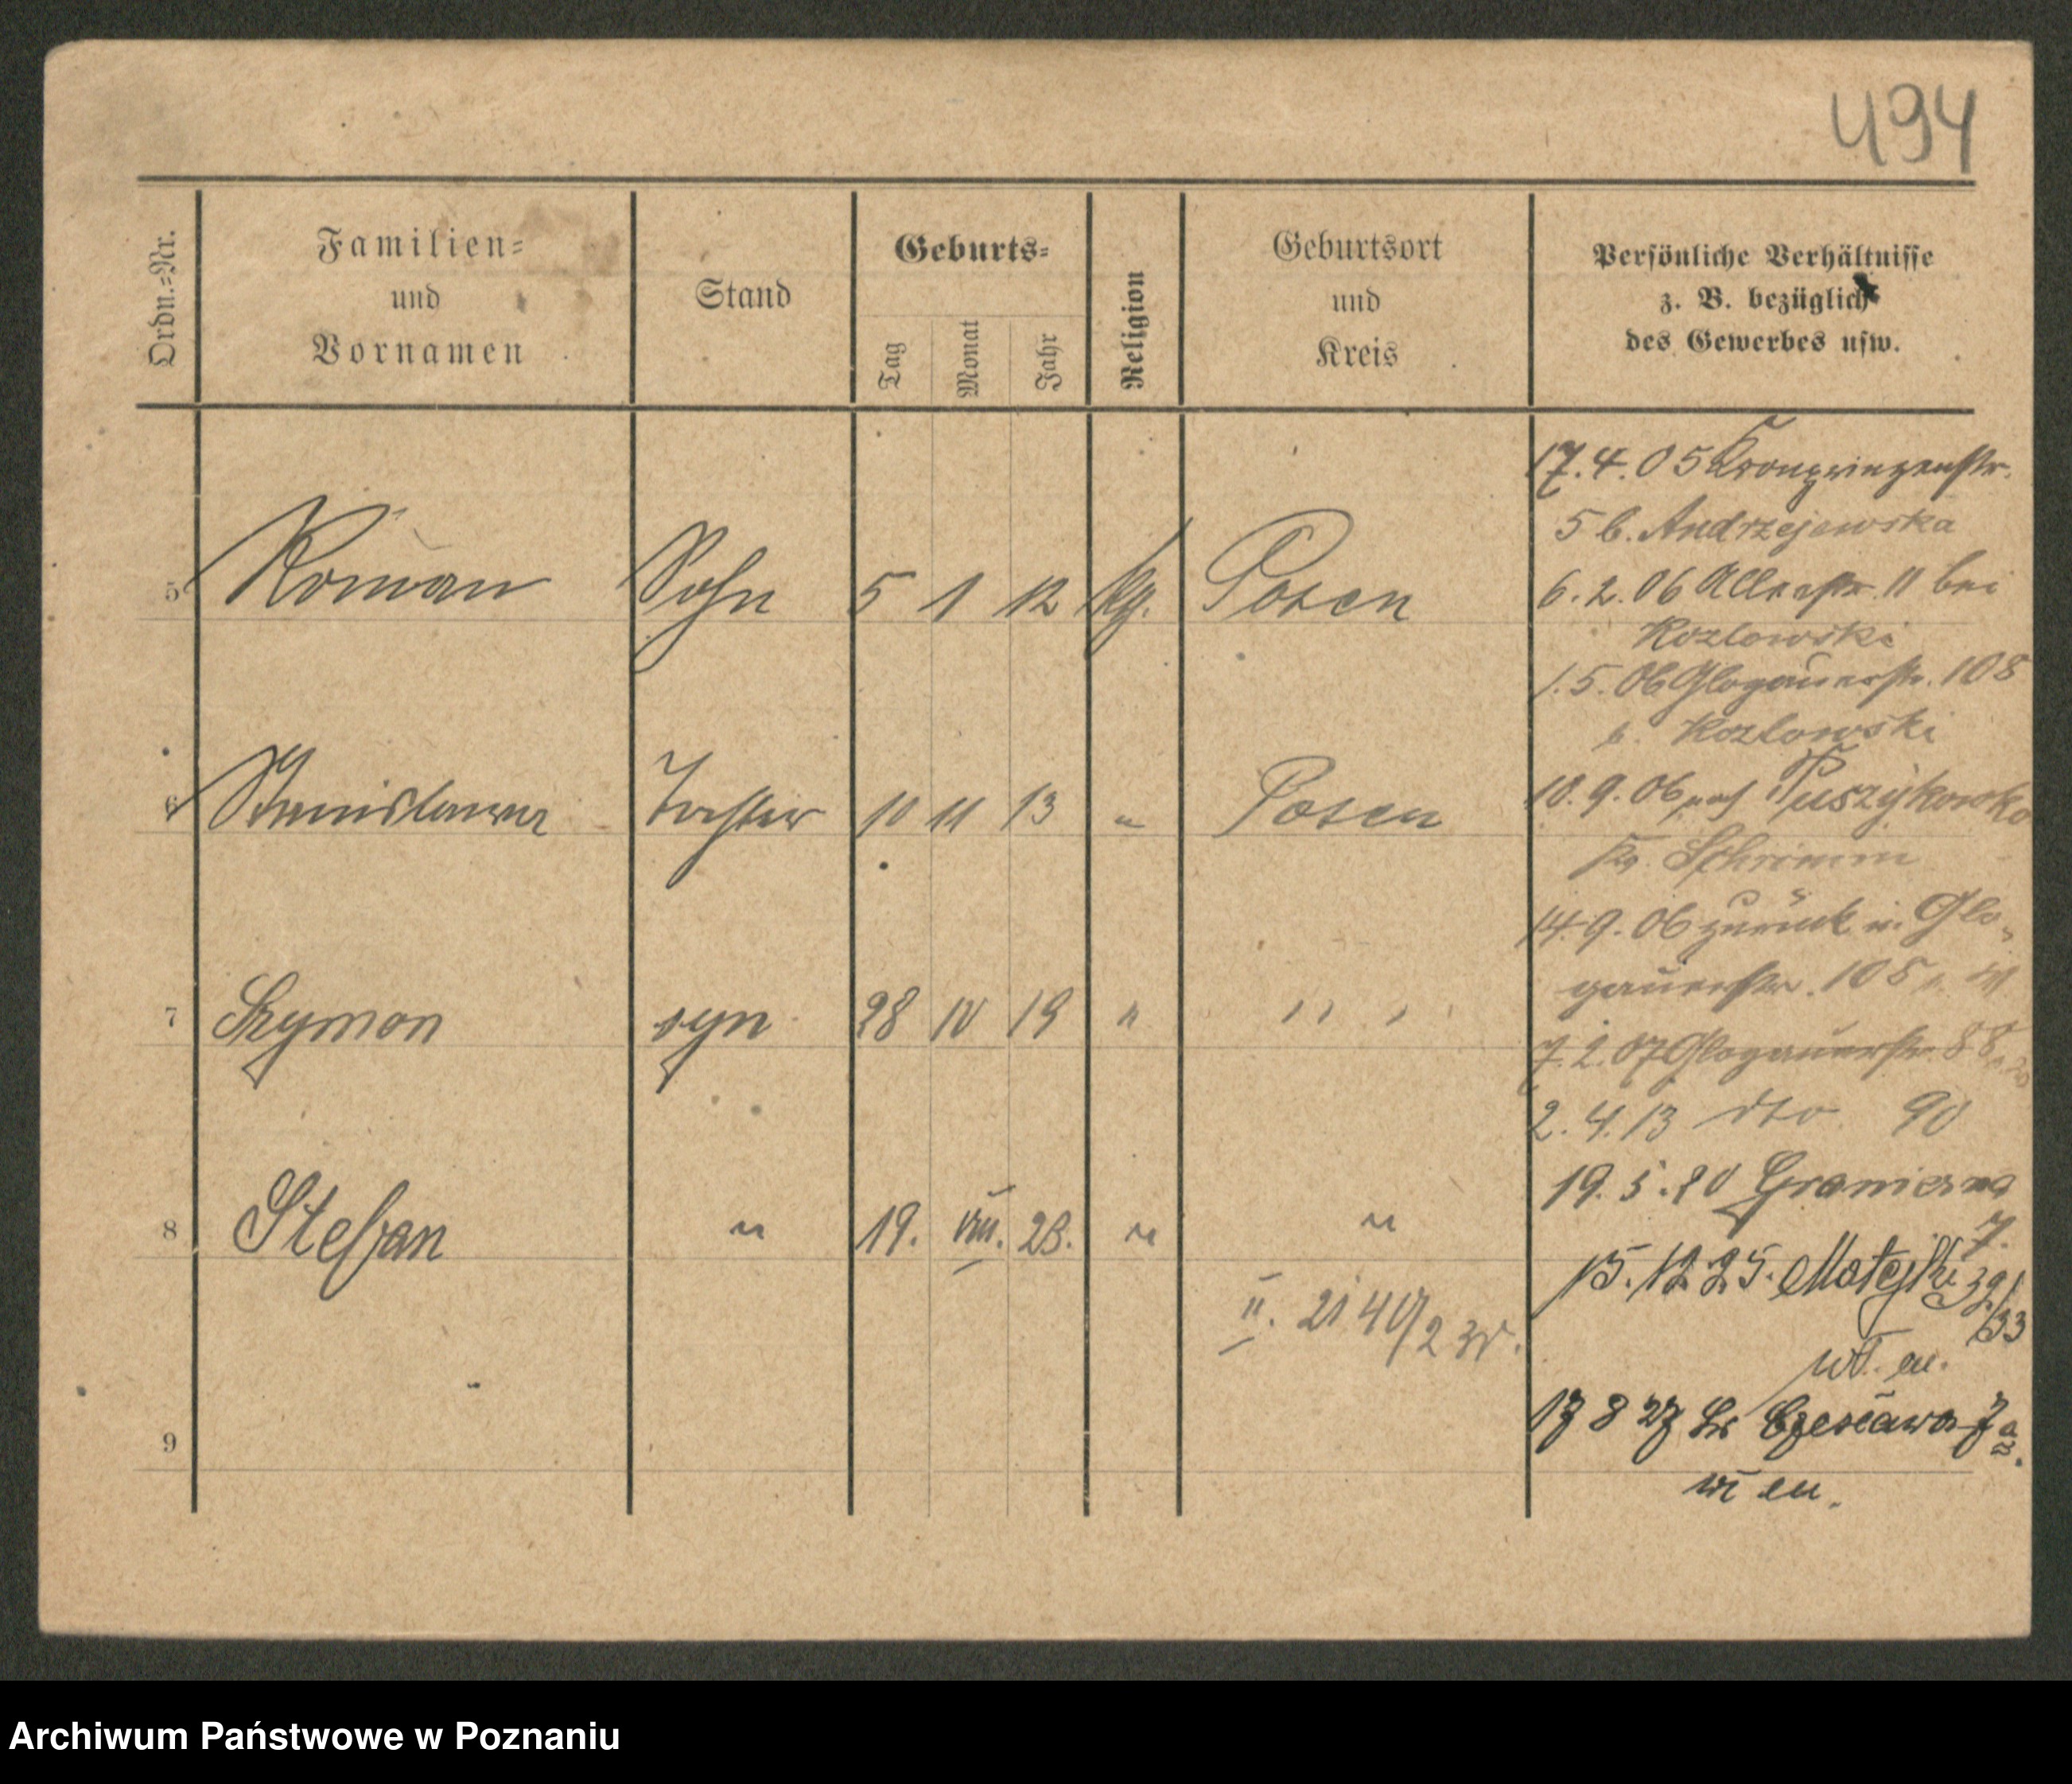 494
Ordn.=Nr.
Familien=
und
Vornamen
Stand
Geburts=
Tag
Monat
Jahr
Religion
Geburtsort
und
Kreis
Persönliche Verhältnisse
z. B. bezüglich
des Gewerbes usw.
5 Roman Sohn 5 1 12 kg. Posen
6 Stanislawa Tochter 10 11 13 " Posen
7 Szymon syn 28 IV 19 " " "
8 Stefan " 19. VIII. 23. " "
II. 21 40/2
9
17.4.05 Kronprinzenstr.
5 b. Andrzejewska
6.2.06 11 bei
Kozlowski
1.5.06 Glogauerstr. 108
b. Kozlowski
10.9.06 nach Puszykowko
Kr. Schrimm
14.9.06 zurück n. Glo-
gauerstr. 105
7.2.07 Glogauerstr. 88
2.4.13 dto 90
19.5.20 Graniczna
7.
15.12 25. Matejki 32/33
17 8 27 Czesława 7a.